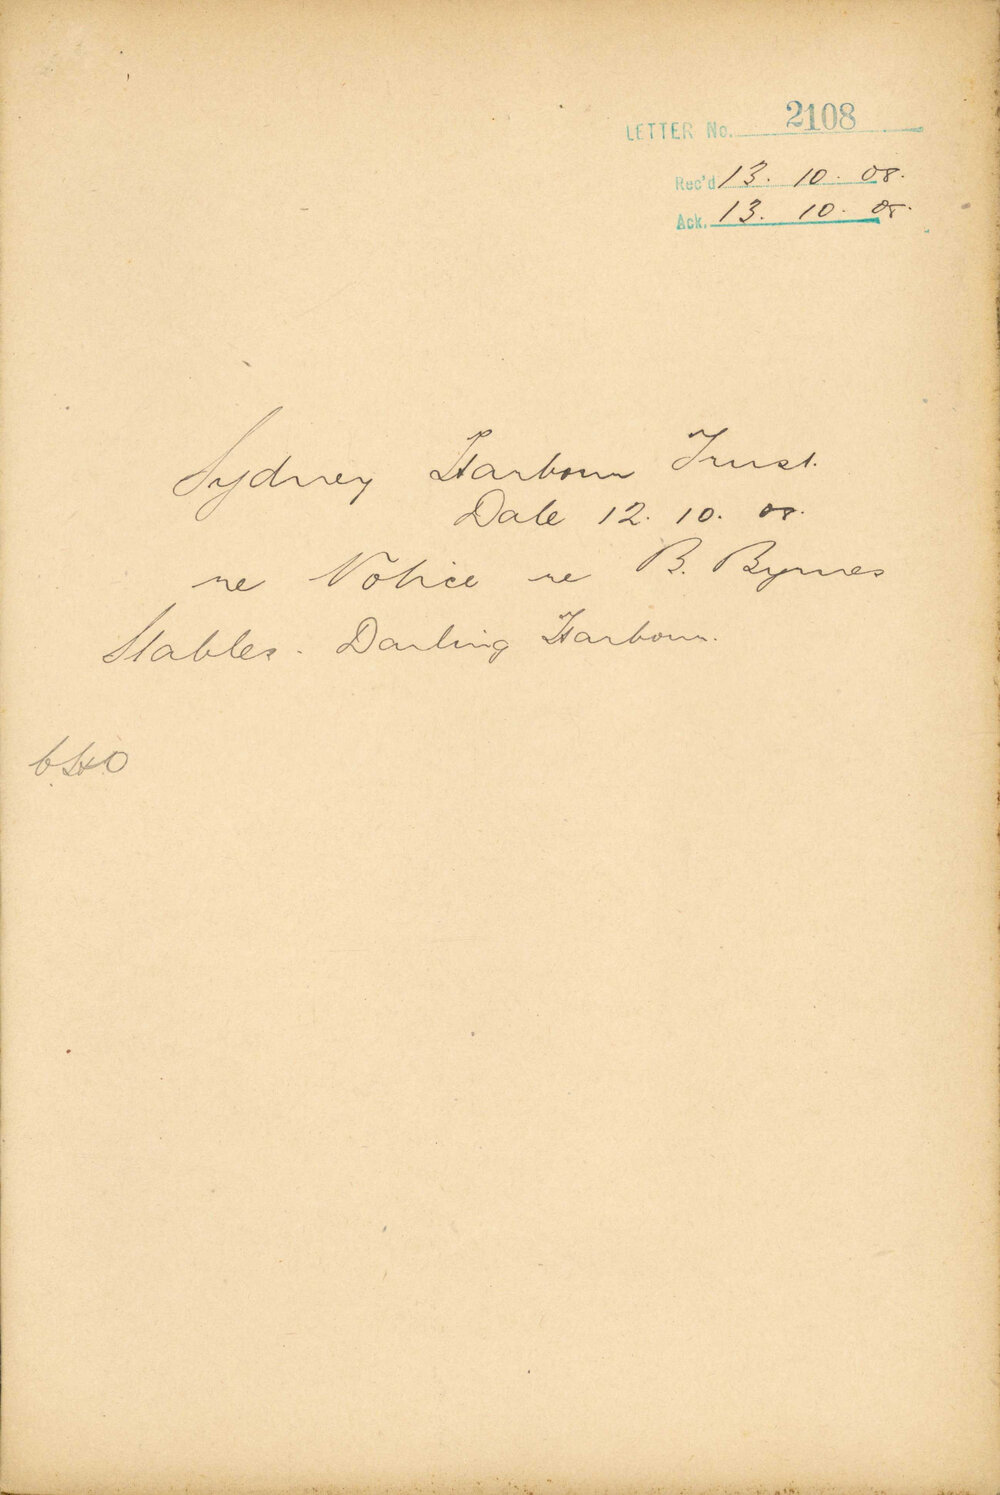 LETTER No. 2108
Rec'd 13. 10. 08.
Ack. 13. 10. 08.
Sydney Harbour Trust.
Date 12. 10. 08.
re Notice re B. Byrnes
Stables. Darling Harbour.
C.H.O